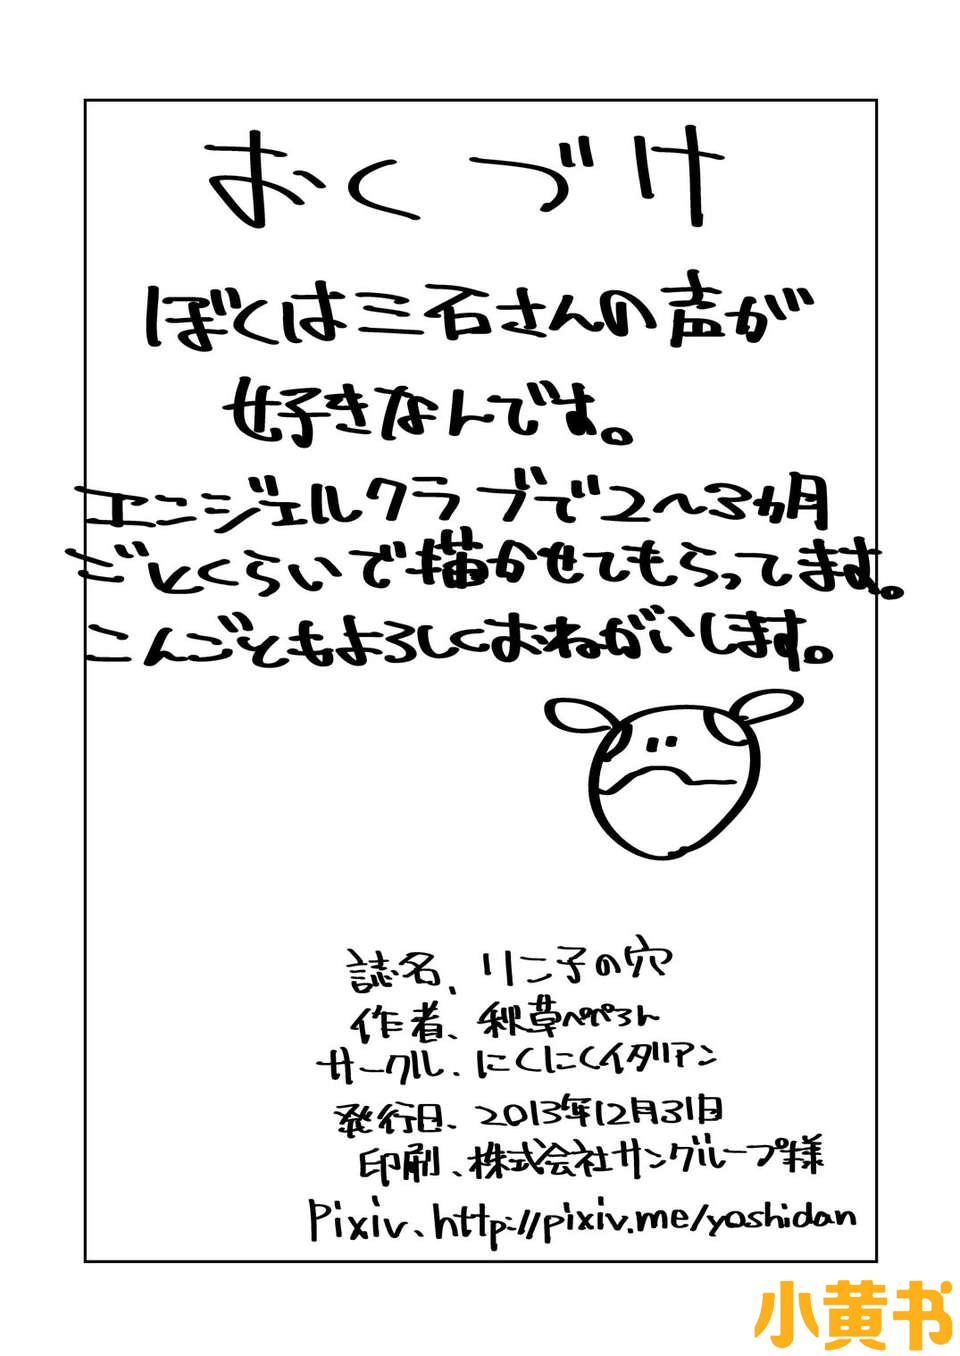 おくづけ
ぼくは三石さんの声が
好きなんです。
エンジェルクラブで2〜3ヵ月
ごとくらいで描かせてもらってます。
こんごともよろしくおねがいします。
誌名、リン子の穴
作者、秋草ぺぺろん
サークル、にくにくイタリアン
発行日、2013年12月31日
印刷、株式会社サングループ様
Pixiv、http://pixiv.me/yoshidan
小黄书